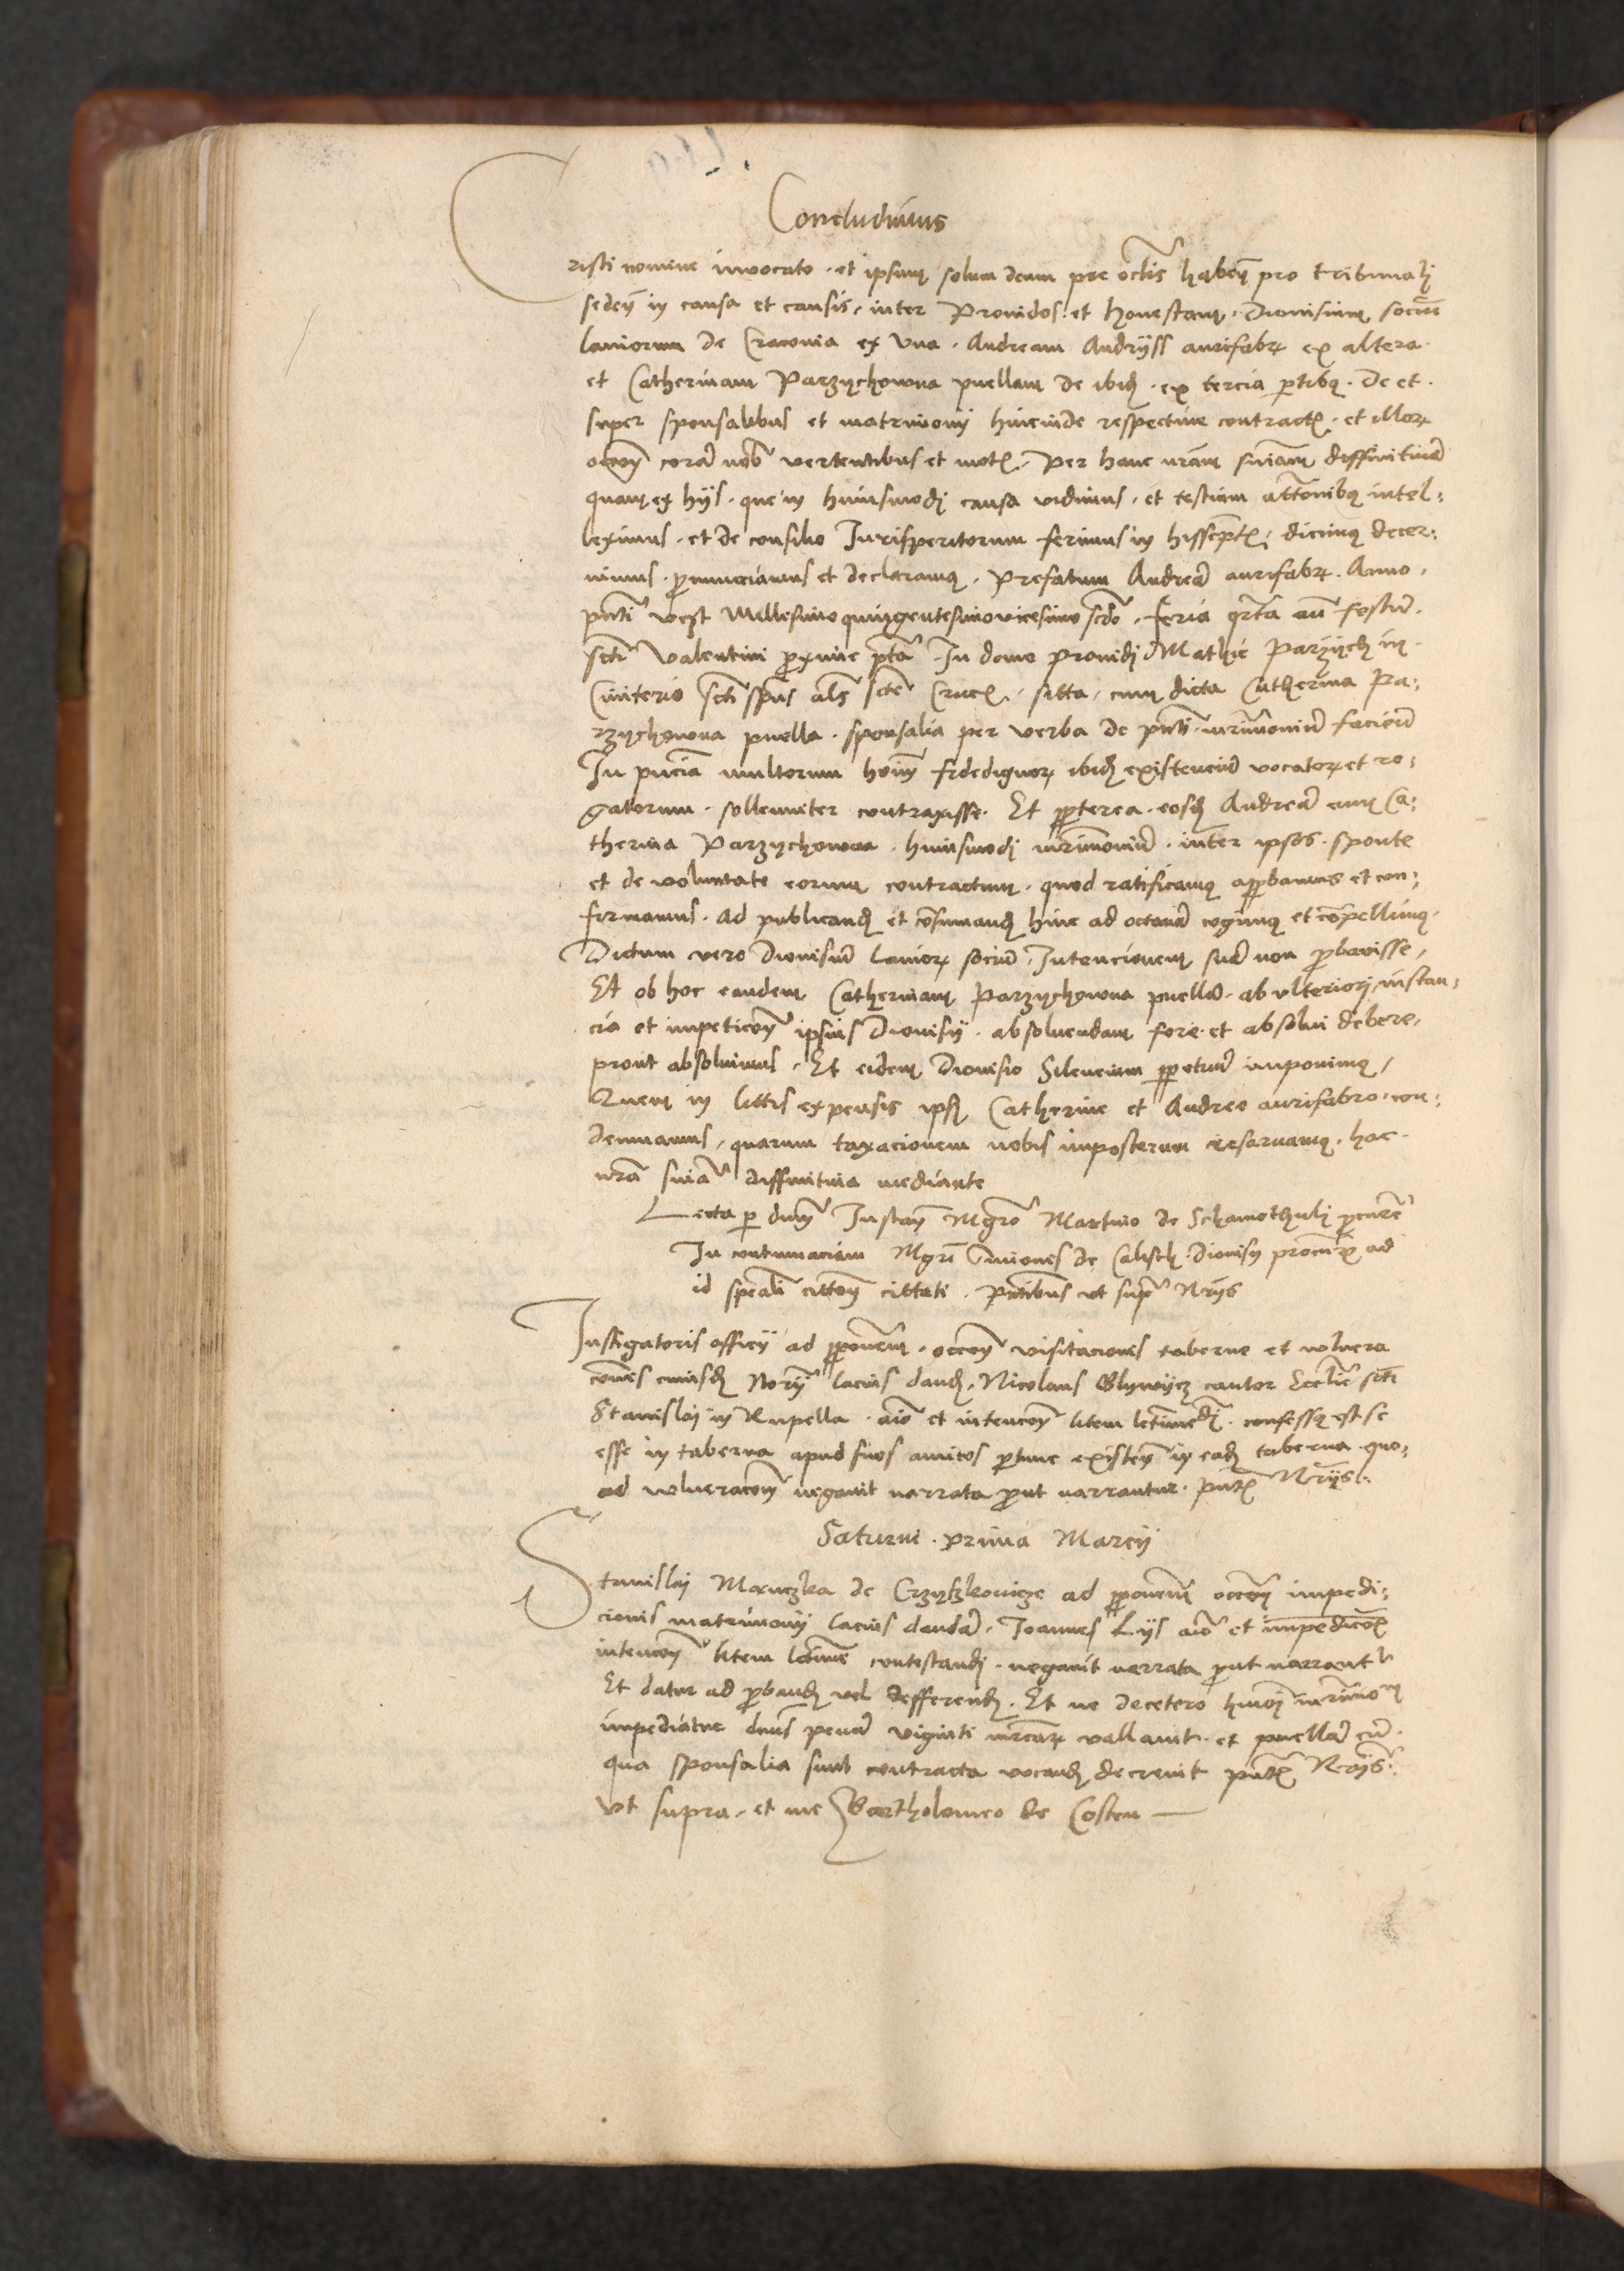 Concludimus
Cristi nomine invocato · et ipsum solum deum pre oclis habeñ pro tribunali
sedeñ in causa et causis · inter Providos et honestam · Dionisium sociũ
laniorum de Cracovia ex Una · Andream Andrijss aurifabrꝝ ex altera
et Catherinam Parzychowna puellam de ibidꝫ · ex tercia ꝑtibꝰ · de et
super sponsalibus et matrimonij hincinde respective contractꝭ · et illorꝝ
occõñ corã nobˀ vertentibus et motꝭ · Per hanc nrãm sniãm diffinitivã
quam ex hijs · que in huiusmodi causa vidimus · et testium attõnibꝰ intel-
leximus · et de consilio Jurisperitorum ferimus in hisscriptꝭ dicimꝰ decer-
nimus · pronunciamus et declaramꝰ · Prefatum Andreã aurifabrꝝ · Anno
pñti videlicet Millesimo quingentesimo vicesimo scdo · feria qrta añ festũ
scti Valentini proxime pterita · In domo providi Mathie Parzych in
Cimiterio scti spũs als scte Crucis · sitta · cum dicta Catherina Pa-
rzychowna puella · sponsalia per verba de pñti mrimonium facieñ
In pñcia multorum hoĩm fidedignorꝝ ibidꝫ existenciũ vocatorꝝ et ro-
gatorum · sollenniter contraxisse · Et propterea · eosdꝫ Andreã cum Ca-
therina Parzychowna · huiusmodi mrimoniũ · inter ipsos · sponte
et de voluntate eorum contractum · quod ratificamꝰ approbamus et con-
firmamus · ad publicandꝫ et cõsumandꝫ hinc ad octavã cogimꝰ et cõpellimꝰ
Dictum vero Dionisiũ laniorꝝ sociũ · Intencionem suã non probavisse
Et ob hoc eandem Catherinam Parzychowna puellã · ab ulteriori instan-
cia et impeticõñ ipsius Dionisij · absolvendam fore · et absolvi debere
prout absolvimus · Et eidem Dionisio Silencium perpetuũ imponimꝰ
Quem in littis expensis ipsi Catherine et Andree aurifabro · con-
demnamus · quarum taxacionem nobis imposterum reservamꝰ · hac
nrã sniã diffinitiva mediante
Lecta per dnm Instañ Mgro Martino de Schamothuli procure
In contumaciam Mgri Simonis de Calisch Dionisij procuris ad
id speali cittoñ cittati · Pñtibus ut supra Nrijs
Instigatoris officij ad proponem · occoñ visitacionis taberne et vulnera
cõnis cuiusdꝫ Norij lacius dandꝫ · Nicolaus Glywycz cantor Ecclie scti
Stanislai in Rupella · aio et intencoñ litem letime · confessꝰ est se
esse in taberna apud suos amicos protunc existeñ in eadꝫ taberna quo-
ad vulneracoñ negavit narrata prout narrantur · pñtꝭ Nrijs
Saturni · prima Marcij
Stanislai Maruczka de Crzyszkovicze ad proponem occoñ impedi-
cionis matrimonij lacius dandã · Joannes Lys aio et impedicoꝭ
intencoñ litem letime contestandi · negavit narrata prout narrant
Et datur ad probandꝫ vel defferendꝫ · Et ne decetero huioi mrimoni
impediatur dnus penã viginti mrcarꝝ vallavit · et puellã cũ
qua sponsalia sunt contracta vocandꝫ decrevit pñtꝭ Nrijs
Ut supra · et me Bartholomeo de Costen